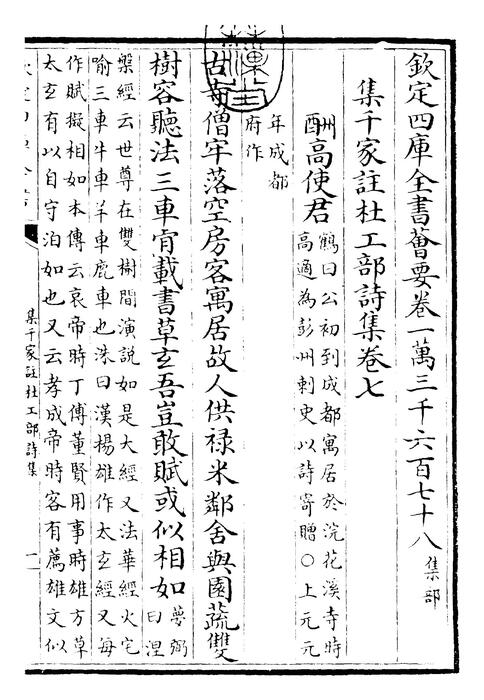 欽定四庫全書薈要卷一萬三千六百七十八集部
集千家註杜工部詩集卷七
酬高使君鶴曰公初到成都寓居於浣花溪寺時
高適為彭州刺史以詩寄贈○上元元
年成都
府作
古寺僧牢落空房客寓居故人供禄米鄰舍與園蔬雙
樹容聽法三車肎載書草玄吾豈敢賦或似相如夢弼
曰涅
槃經云世尊在雙樹間演説如是大經又法華經火宅
喻三車牛車羊車鹿車也洙曰漢楊雄作太玄經又每
作賦擬相如本傳云哀帝時丁傅董賢用事時雄方草
太玄有以自守泊如也又云孝成帝時客有薦雄文似
集千家註杜工部詩集
一